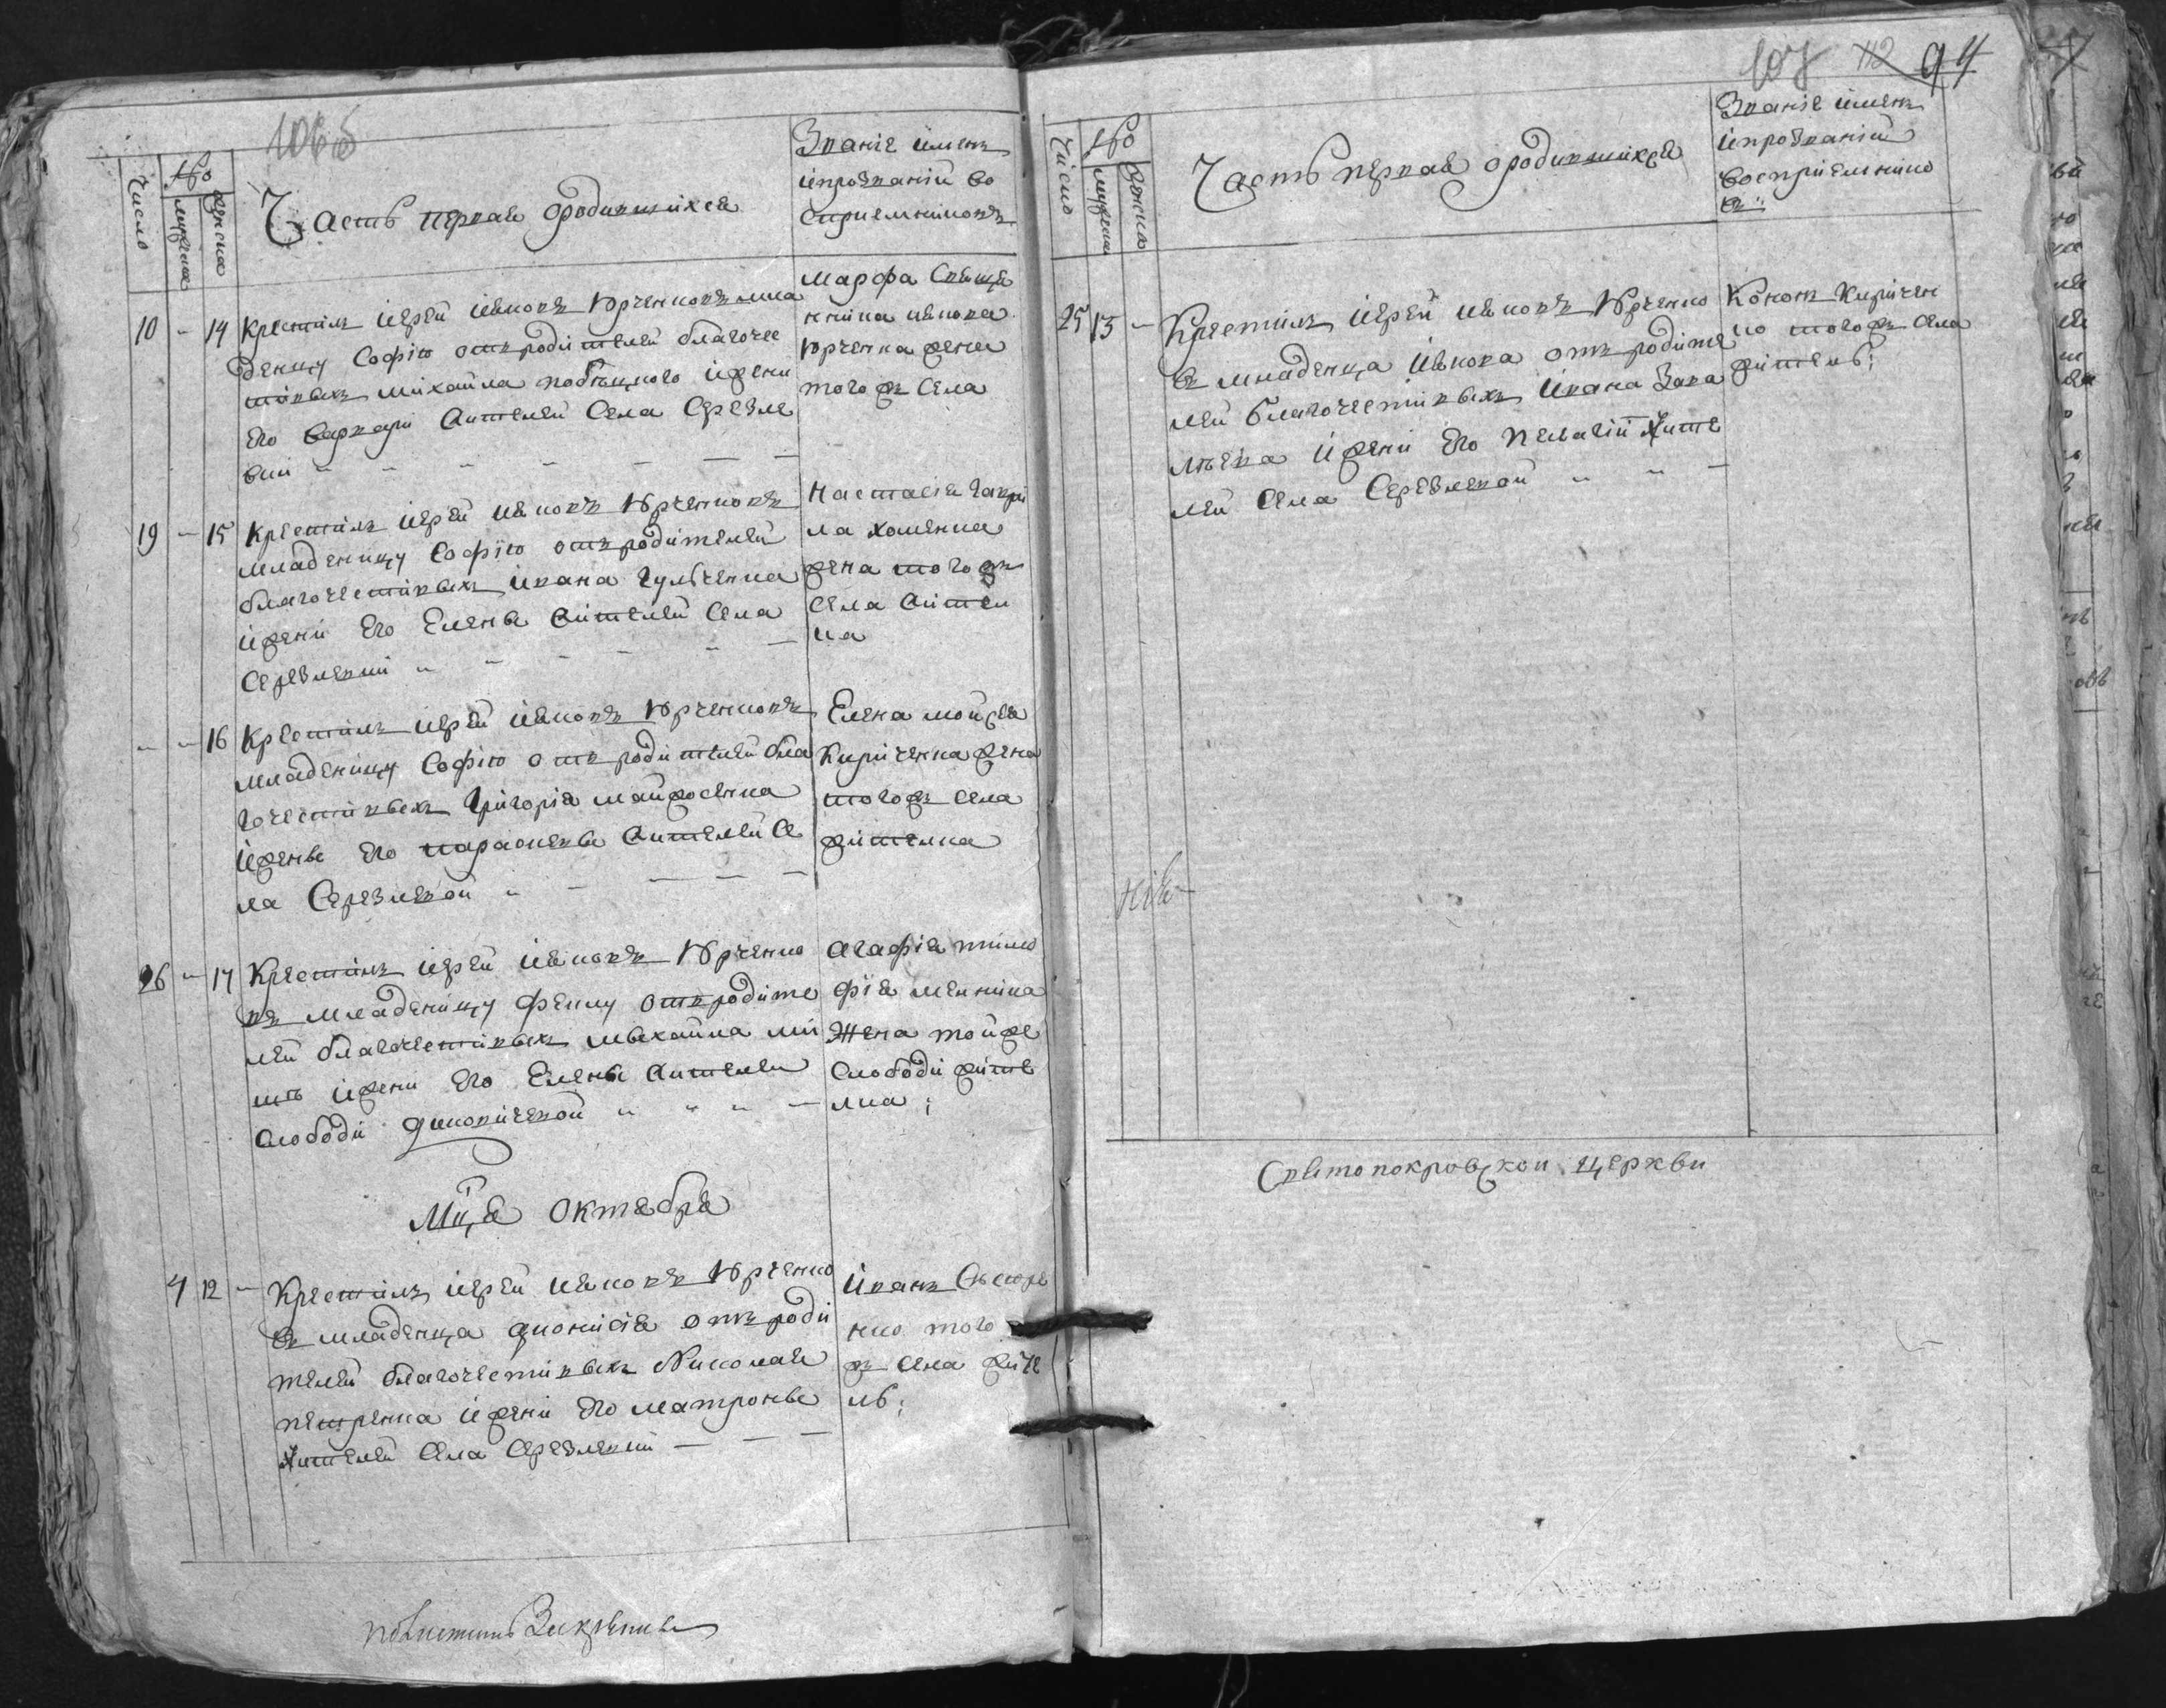 106 об
Число
№
мужеска
женска
Часть первая о родившихся
Званіе именъ
и прозваній во
спріемниковъ
10 - 14 Крестилъ іерей Іяковъ Юрченковъ мла
денцу Софію отъ родителей благочес
тивыхъ Михайла и жени
его Варвари жителей села Серезле
вки
Марфа Свяще
нника Иякова
Юрченка жена
того жъ села
19 - 15 Крестилъ іерей Ияковъ Юрченковъ
младеницу Софію отъ родителей
благочестивыхъ Ивана Гульченка
и жени его Елены жителей села
Серезлевки
Настасія Гаври
ла Хоменка
жена того жъ
села жител
ка
- - 16 Крестилъ іерей Іяковъ Юрченковъ
младеницу Софію отъ родителей бла
гочестивыхъ Григорія
и жены его Параскевы жителей се
ла Серезлевой
Елена Мойсея
Кириченка жена
того жъ села
жителка
26 - 17 Крестилъ іерей Іяковъ Юрченко
въ младеницу Феклу отъ родите
лей благочестивыхъ Мыхайла
и жени его Елены жителей
слободи
Агафія Тимо
фія Мелника
жена той же
слободи жите
лка;
Мца Октября
4 12 - Крестилъ іерей Ияковъ Юрченко
въ младенца Дионисія отъ роди
телей благочестивыхъ Николая
Петренка и жени его Матроны
жителей села Серезлевки
Иванъ
того
жъ села жите
ль;
107 112 94
Число
№
мужеска
женска
Часть первая о родившихся
Званіе именъ
и прозваній
воспріемнико
въ
25 13 - Крестилъ іерей Ияковъ Юрченко
въ младенца Иякова отъ родите
лей благочестивыхъ Ивана
и жени его Пелагіи жите
лей села Серезлевой
Кононъ Киричен
ко того жъ села
житель;
Святопокровской церкви